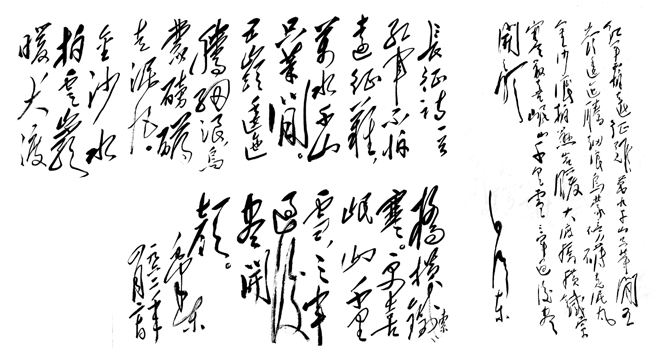 長征詩一首
紅軍不怕
遠征難,
萬水千山
只等閒。
五嶺逶迤
騰細浪,烏
蒙磅礴
走泥丸。
金沙水
拍雲崖
暖,大渡
橋橫鐵索
寒。更喜
岷山千里
雪,三軍
過後
盡開
顏。
毛澤東
一九六二年
四月廿日
紅軍不怕遠征難萬水千山只等閒五
嶺逶迤騰細浪烏蒙磅礴走泥丸
金沙浪拍雲崖暖大渡橋橫鐵索
寒更喜岷山千里雪三軍過後盡
開顏
毛澤東